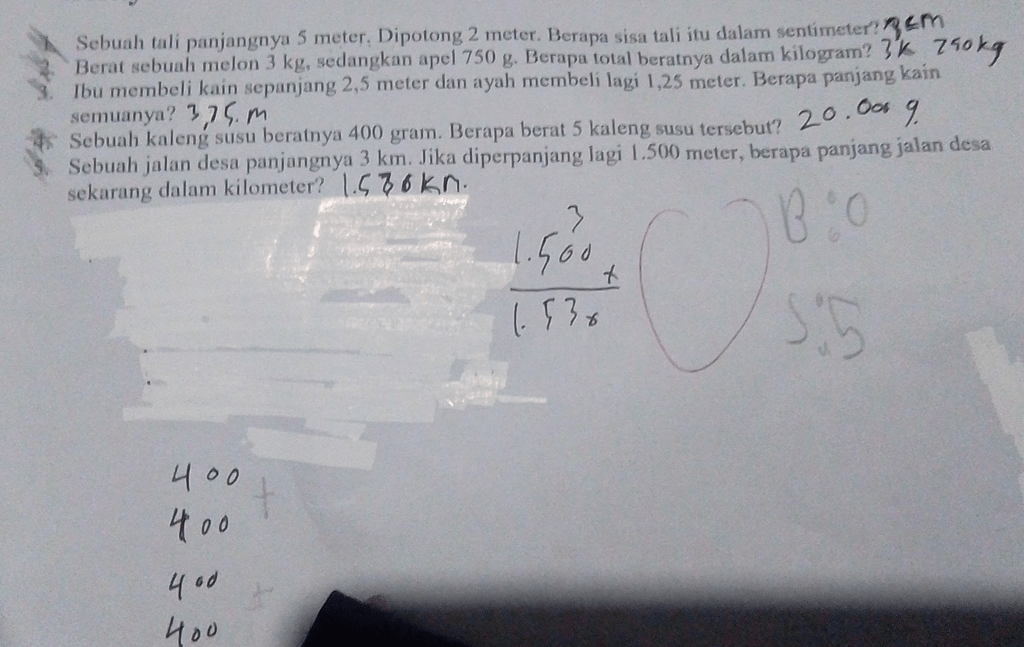 1. Sebuah tali panjangnya 5 meter. Dipotong 2 meter. Berapa sisa tali itu dalam sentimeter? 3cm
2. Berat sebuah melon 3 kg, sedangkan apel 750 g. Berapa total beratnya dalam kilogram? 3k 750kg
3. Ibu membeli kain sepanjang 2,5 meter dan ayah membeli lagi 1,25 meter. Berapa panjang kain
semuanya? 3,75.m
4. Sebuah kaleng susu beratnya 400 gram. Berapa berat 5 kaleng susu tersebut? 20.000 g
5. Sebuah jalan desa panjangnya 3 km. Jika diperpanjang lagi 1.500 meter, berapa panjang jalan desa
sekarang dalam kilometer? 1.530kn.
3
1.500 +
1.530
B:0
S:5
400 +
400
400 +
400